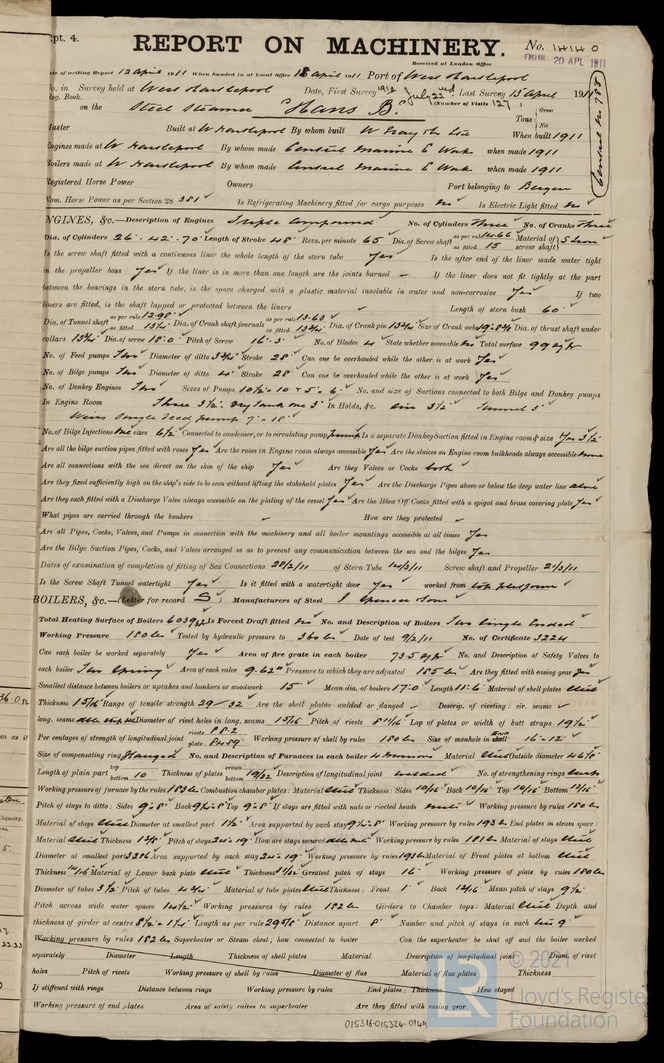 Rpt. 4.
REPORT ON MACHINERY.
No. 14140
Received at London Office
THUR. 20 APL 1911
Date of writing Report 12 April 1911 When handed in at Local Office 18 April 1911 Port of West Hartlepool
No. in Survey held at West Hartlepool Date, First Survey 1910 July 22nd Last Survey 13 April 1911
Reg. Book. (Number of Visits 127)
on the Steel Steamer "Hans B."
Tons Gross Net
Master Built at W Hartlepool By whom built W Gray & Co Ltd When built 1911
Engines made at W Hartlepool By whom made Central Marine E Works when made 1911
Boilers made at W Hartlepool By whom made Central Marine E Works when made 1911
Registered Horse Power Owners Port belonging to Bergen
Nom. Horse Power as per Section 28 381 Is Refrigerating Machinery fitted for cargo purposes no Is Electric Light fitted no
ENGINES, &c.—Description of Engines Triple Compound No. of Cylinders Three No. of Cranks Three
Dia. of Cylinders 26" . 42" . 70" Length of Stroke 48" Revs. per minute 65 Dia. of Screw shaft as per rule 14.66 as fitted 15 Material of screw shaft
Is the screw shaft fitted with a continuous liner the whole length of the stern tube Yes Is the after end of the liner made water tight
in the propeller boss Yes If the liner is in more than one length are the joints burned – If the liner does not fit tightly at the part
between the bearings in the stern tube, is the space charged with a plastic material insoluble in water and non-corrosive Yes If two
liners are fitted, is the shaft lapped or protected between the liners Length of stern bush 60"
Dia. of Tunnel shaft as per rule 12.98 as fitted 13 1/4 Dia. of Crank shaft journals as per rule 13.63 as fitted 13 3/4 Dia. of Crank pin 13 3/4 Size of Crank webs Dia. of thrust shaft under
collars 13 3/4 Dia. of screw 18'.0" Pitch of Screw 16'.3" No. of Blades 4 State whether moveable no Total surface 99 sq ft
No. of Feed pumps Two Diameter of ditto 3 3/4 Stroke 28" Can one be overhauled while the other is at work Yes
No. of Bilge pumps Two Diameter of ditto 4" Stroke 28" Can one be overhauled while the other is at work Yes
No. of Donkey Engines Two Sizes of Pumps No. and size of Suctions connected to both Bilge and Donkey pumps
In Engine Room Three 3 1/2" In Holds, &c. Tunnel 3"
Weirs single feed pump
No. of Bilge Injections one sizes 6 1/2 Connected to condenser, or to circulating pump pump Is a separate Donkey Suction fitted in Engine room & size Yes 3 1/2
Are all the bilge suction pipes fitted with roses Yes Are the roses in Engine room always accessible Yes Are the sluices on Engine room bulkheads always accessible none
Are all connections with the sea direct on the skin of the ship Yes Are they Valves or Cocks both
Are they fixed sufficiently high on the ship's side to be seen without lifting the stokehold plates Yes Are the Discharge Pipes above or below the deep water line above
Are they each fitted with a Discharge Valve always accessible on the plating of the vessel Yes Are the Blow Off Cocks fitted with a spigot and brass covering plate Yes
What pipes are carried through the bunkers – How are they protected –
Are all Pipes, Cocks, Valves, and Pumps in connection with the machinery and all boiler mountings accessible at all times Yes
Are the Bilge Suction Pipes, Cocks, and Valves arranged so as to prevent any communication between the sea and the bilges Yes
Dates of examination of completion of fitting of Sea Connections 28/2/11 of Stern Tube 14/3/11 Screw shaft and Propeller 21/3/11
Is the Screw Shaft Tunnel watertight Yes Is it fitted with a watertight door Yes worked from top platform
BOILERS, &c.—(Letter for record S) Manufacturers of Steel J Spencer & Sons
Total Heating Surface of Boilers 6039 Is Forced Draft fitted no No. and Description of Boilers Two Single Ended
Working Pressure 180 lbs Tested by hydraulic pressure to 360 lbs Date of test 9/2/11 No. of Certificate 3224
Can each boiler be worked separately Yes Area of fire grate in each boiler 73.5 sq ft No. and Description of Safety Valves to
each boiler Two Spring Area of each valve 9.62 Pressure to which they are adjusted 185 lbs Are they fitted with easing gear Yes
Smallest distance between boilers or uptakes and bunkers or woodwork 15" Mean dia. of boilers 17'.0" Length 11'.6" Material of shell plates steel
Thickness 1 5/16 Range of tensile strength 29/32 Are the shell plates welded or flanged – Descrip. of riveting: cir. seams
long. seams Diameter of rivet holes in long. seams 1 5/16 Pitch of rivets Lap of plates or width of butt straps 19 1/2
Per centages of strength of longitudinal joint rivets 88.2 plate 84.89 Working pressure of shell by rules 180 lbs Size of manhole in 16" × 12"
Size of compensating ring flanged No. and Description of Furnaces in each boiler Material steel Outside diameter
Length of plain part top bottom 10 Thickness of plates crown bottom 19/32 Description of longitudinal joint welded No. of strengthening rings
Working pressure of furnace by the rules 183 lbs Combustion chamber plates: Material steel Thickness: Sides 10/16 Back 10/16 Top 10/16 Bottom
Pitch of stays to ditto: Sides Back Top If stays are fitted with nuts or riveted heads nuts Working pressure by rules 180 lbs
Material of stays steel Diameter at smallest part 1 1/2" Area supported by each stay Working pressure by rules 193 lbs End plates in steam space:
Material steel Thickness Pitch of stays How are stays secured Working pressure by rules 181 lbs Material of stays steel
Diameter at smallest part Area supported by each stay Working pressure by rules Material of Front plates at bottom steel
Thickness Material of Lower back plate steel Thickness Greatest pitch of stays Working pressure of plate by rules 180 lbs
Diameter of tubes 3 1/2 Pitch of tubes Material of tube plates steel Thickness: Front 1" Back Mean pitch of stays
Pitch across wide water spaces 14 1/2" Working pressures by rules 182 lbs Girders to Chamber tops: Material steel Depth and
thickness of girder at centre Length as per rule Distance apart 8" Number and pitch of stays in each
Working pressure by rules 182 lbs Superheater or Steam chest; how connected to boiler Can the superheater be shut off and the boiler worked
separately Diameter Length Thickness of shell plates Material Description of longitudinal joint Diam. of rivet
holes Pitch of rivets Working pressure of shell by rules Diameter of flue Material of flue plates Thickness
If stiffened with rings Distance between rings Working pressure by rules End plates: Thickness How stayed
Working pressure of end plates Area of safety valves to superheater Are they fitted with easing gear
015316-015324-0149
© 2021
Lloyd's Register
Foundation